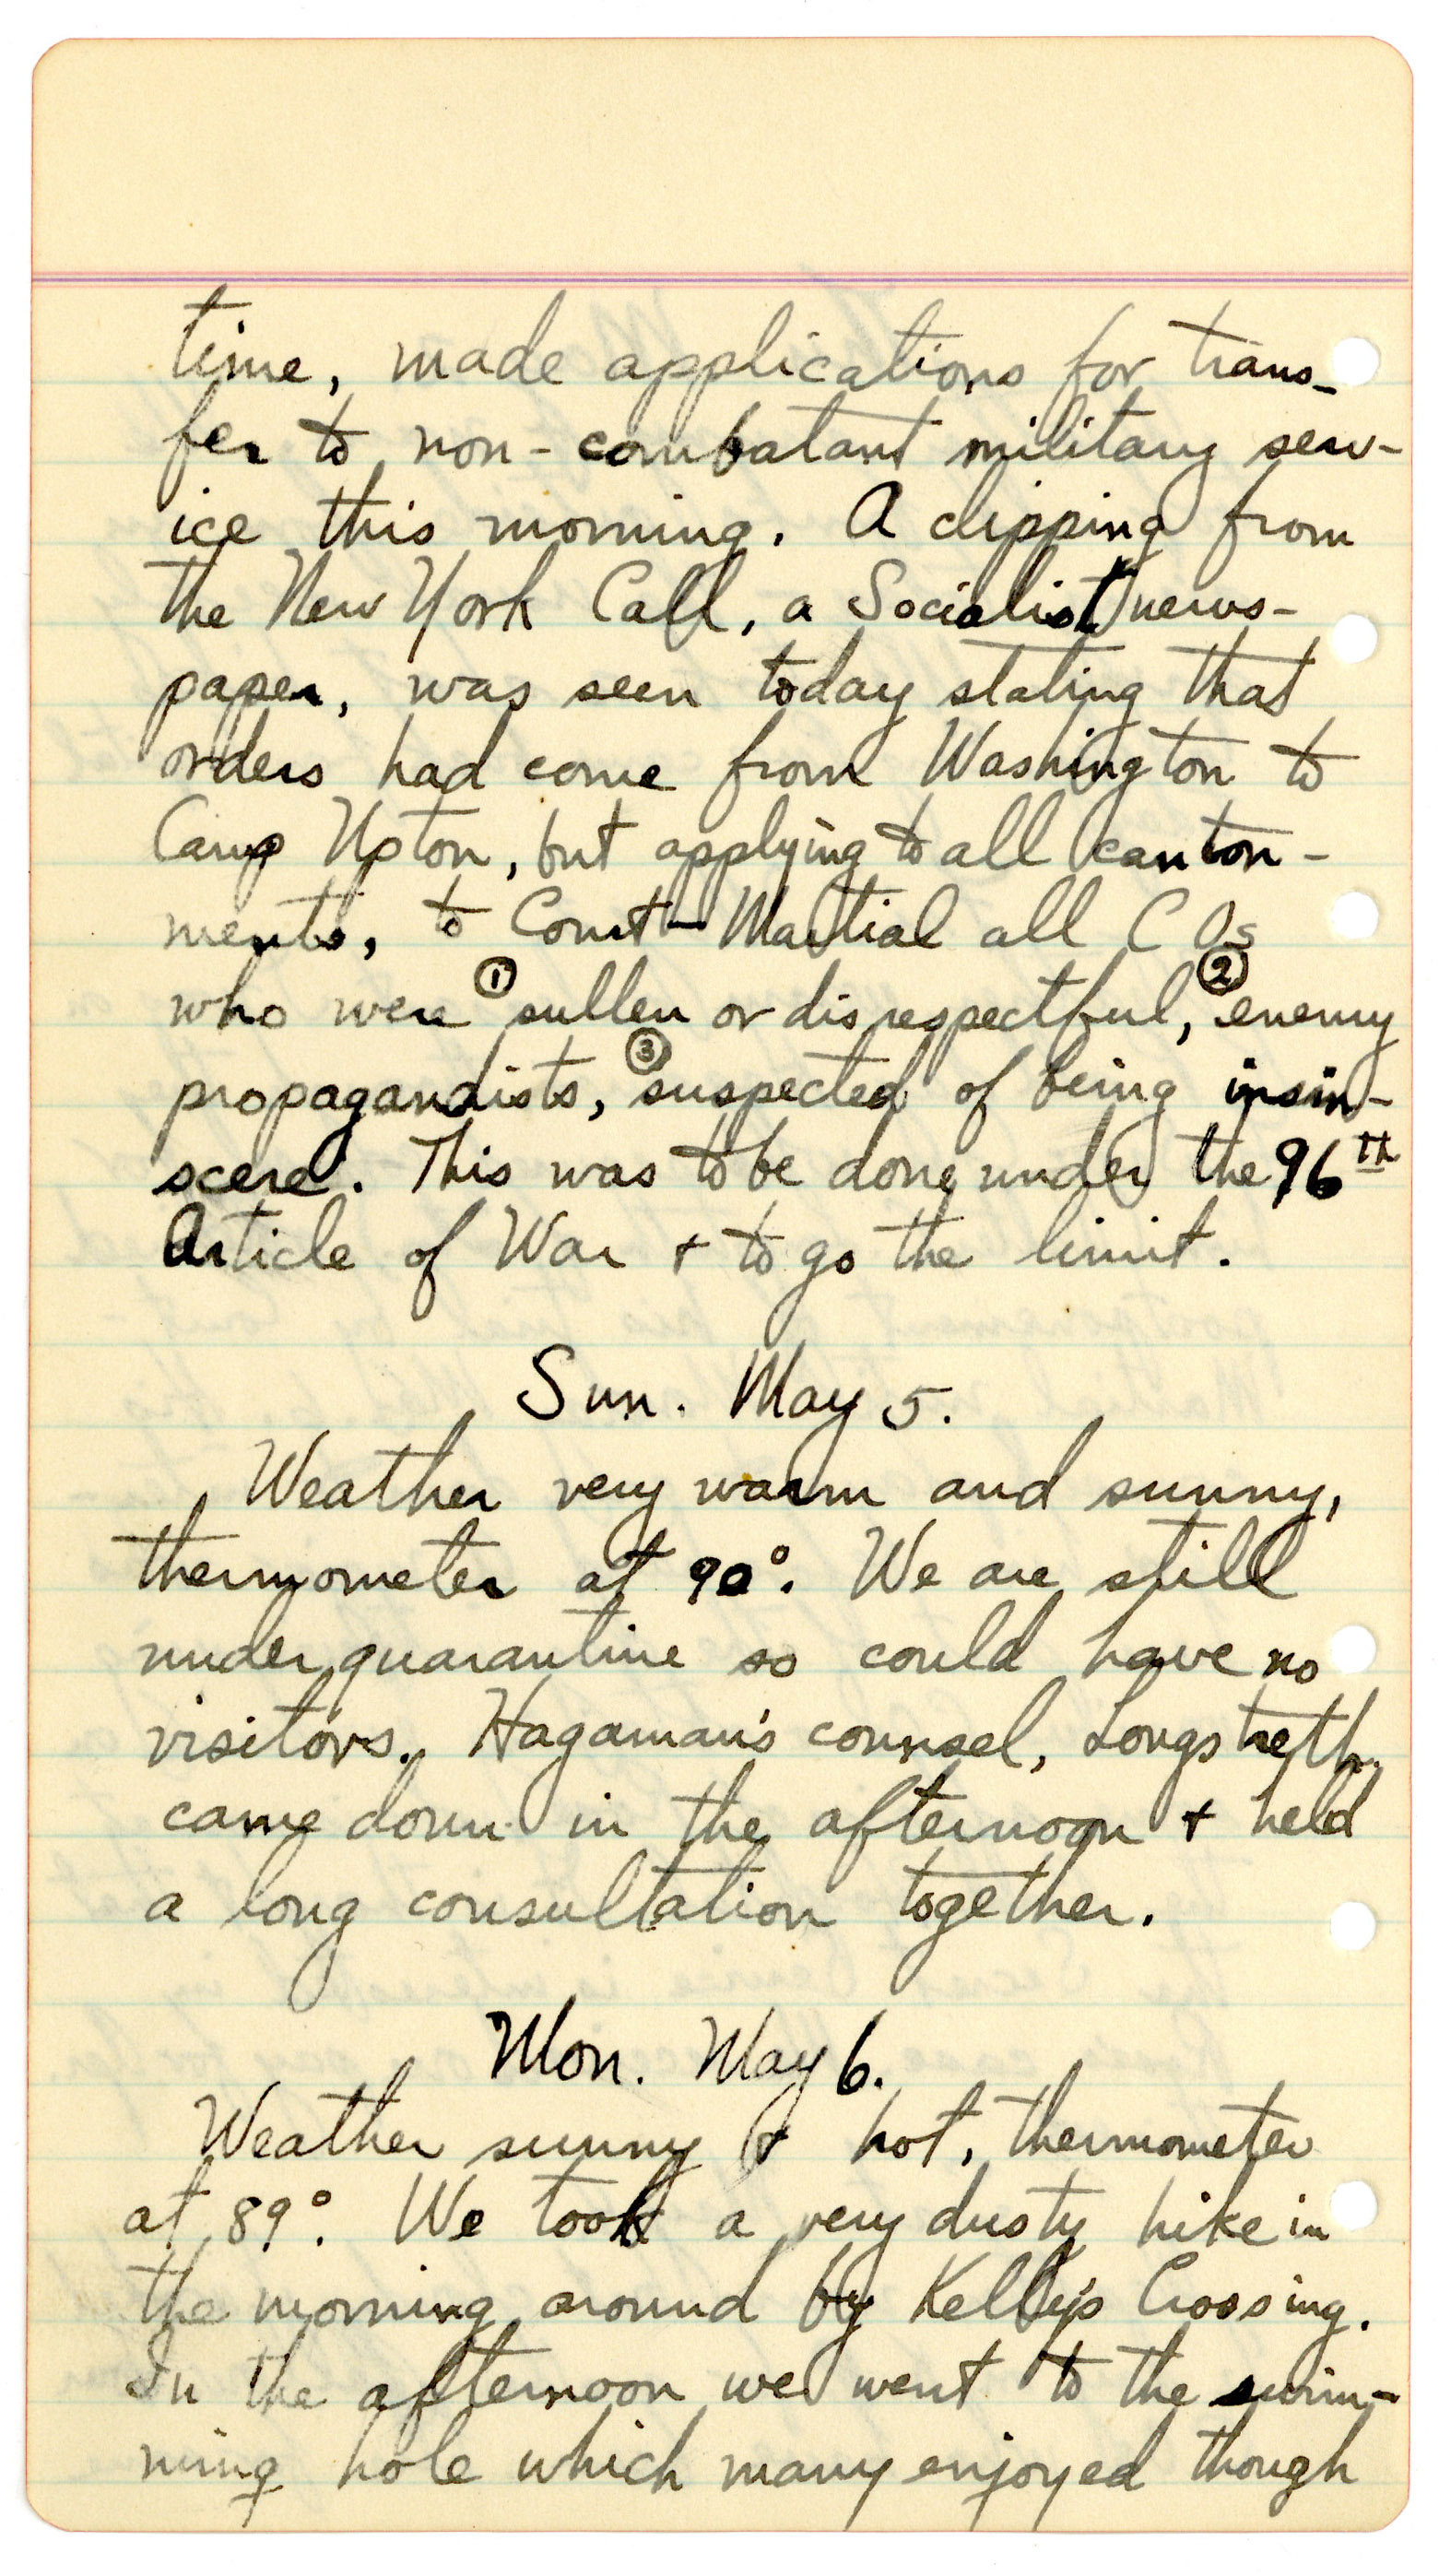 time, made applications for trans-
fer to non-combatant military serv-
ice this morning. A clipping from
the New York Call, a Socialist news-
paper, was seen today stating that
orders had come from Washington to
Camp Upton, but applying to all canton-
ments, to Court-Martial all C Os
who were ① sullen or disrespectful, ② enemy
propagandists, ③ suspected of being insin-
scere. This was to be done under the 96th
Article of War + to go the limit.
Sun. May 5.
Weather very warm and sunny,
thermometer at 90°. We are still
under quarantine so could have no
visitors. Hagaman's counsel, Longstreth,
came down in the afternoon + held
a long consultation together.
Mon. May 6.
Weather sunny & hot, thermometer
at 89°. We took a very dusty hike in
the morning around by Kelly's Crossing.
In the afternoon we went to the swim-
ming hole which many enjoyed though